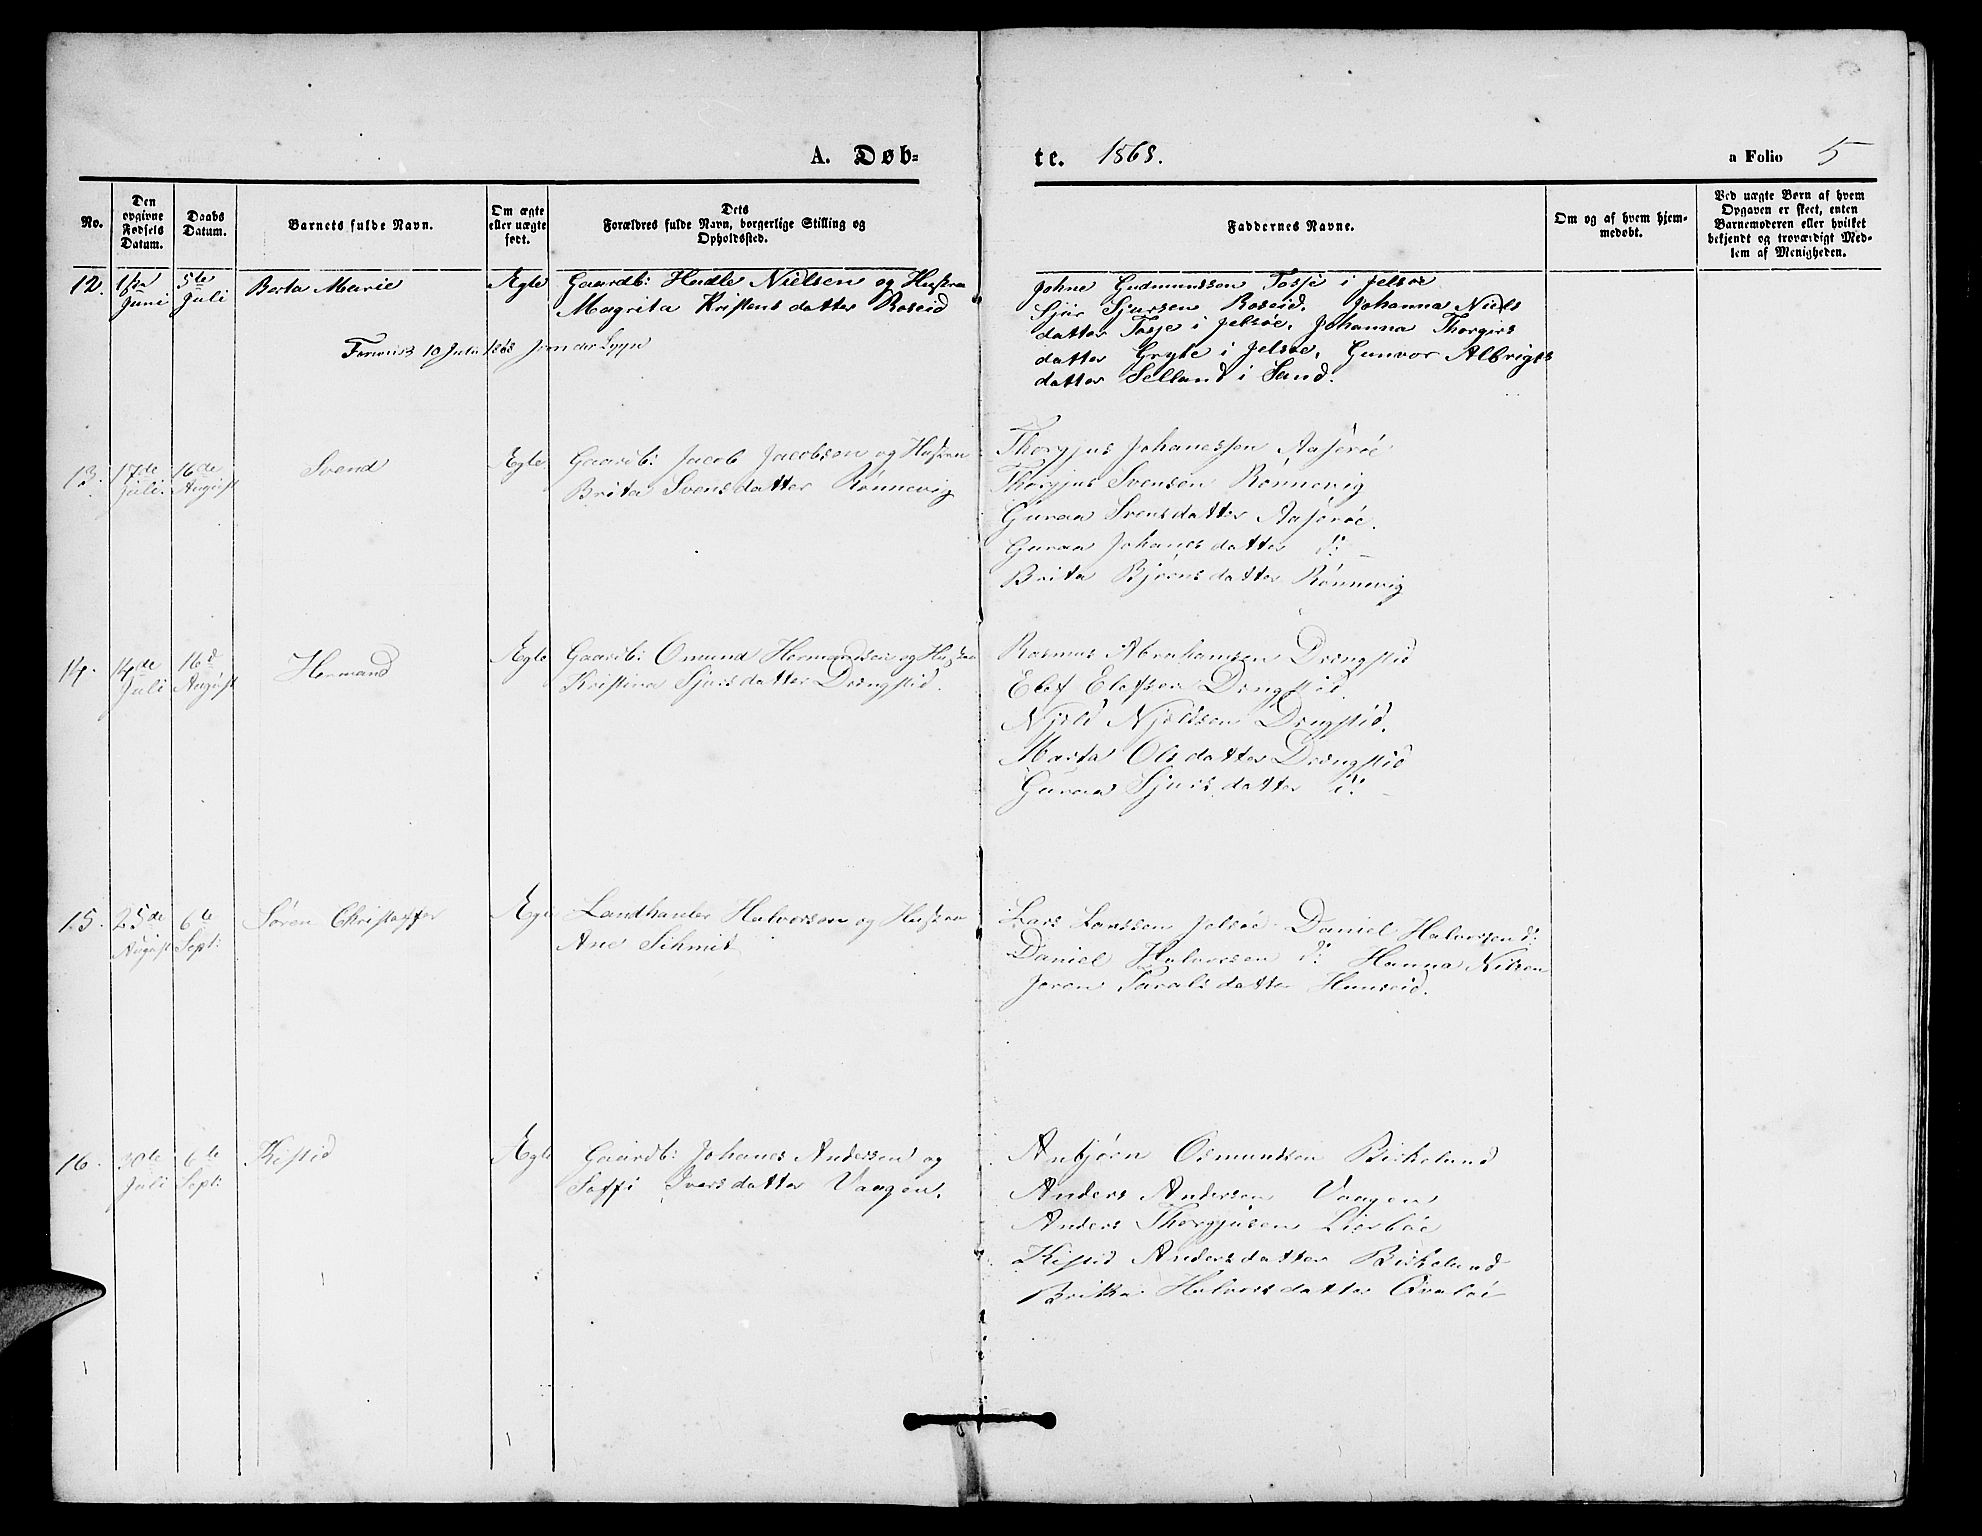 A. Døb-
te. 1868.
a Folio 5
No.
Den opgivne Fødsels Datum.
Daabs Datum.
Barnets fulde Navn.
Om ægte eller uægte født.
Dets
Forældres fulde Navn, borgerlige Stilling og
Opholdssted.
Faddernes Navne.
Om og af hvem hjem-
medøbt.
Ved uægte Børn af hvem
Opgaven er skeet, enten
Barnemoderen eller hvilket
bekjendt og troværdigt Med-
lem af Menigheden.
12. 1ste Juni 5te Juli Berta Marie Ægte Gaardb: Hadle Nielsen og Hustru
Margrita Kristensdatter Roseid
10 Juli 1868
Johne Gudmundsen Tosje i Jelsøe
Sjur Sjursen Roseid. Johanna Niels
datter Tosje i Jelsøe. Johanna Thorgirs
datter Gryte i Jelsøe. Gunvor Albrigts
datter Selland i Sand.
13. 17de Juli. 16de August Svend Ægte Gaardb: Jacob Jacobsen og Hustru
Brita Svensdatter Rønnevig
Thorgjus Johanessen Aaserøe
Thorgjus Svensen Rønnevig
Guraa Svensdatter Aaserøe.
Guraa Johanesdatter d: –
Brita Bjørnsdatter Rønnevig
14. 14de Juli 16d August Hermand Ægte Gaardb: Omund Hermandsen og Hustru
Kristina Sjursdatter Drengstid.
Rasmus Abrahamsen Drengstid
Elef Elefsen Drengstid.
Njeld Njeldsen Drengstid.
Marta Olsdatter Drengstid
Guraa Sjursdatter d: –
15. 25de August 6te Sept: Søren Christoffer Ægte Landhandler Halvorsen og Hustru
Ane Schmidt
Lars Larssen Jelsøe. Daniel Halvorsen d:
Daniel Halvorsen d: Hanna Nilsen
Joren Taralsdatter Hunseid.
16. 30te Juli 6te Sept: Kistid Ægte Gaardb: Johanes Andersen og
Soffi Iversdatter Vaagen.
Anbjørn Osmundsen Birkeland
Anders Andersen Vaagen
Anders Thorgjusen Lierbøe
Kistid Andersdatter Birkeland
Brita Halvorsdatter Qvaløi